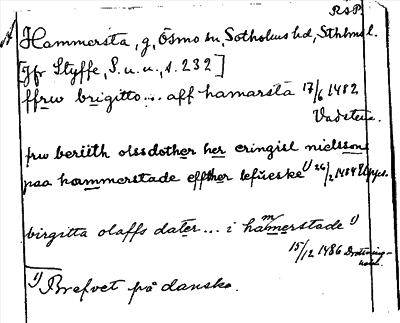 RAP
Hammersta, g, Ösmo sn, Sotholms hd, Sthlms l.
[Jfr Styffe, S. u. u., s. 232]
ffrw brigitto... aff hamarsta 17/6 1482
Vadstena.
frw beriith olssdother her eringisl nielssons
paa hammerstade effther lefueske 1) 26/2 1484
birgitta olaffs dater... i hammerstade 1)
15/12 1486 Drottningholm.
1) Brefvet på danska.